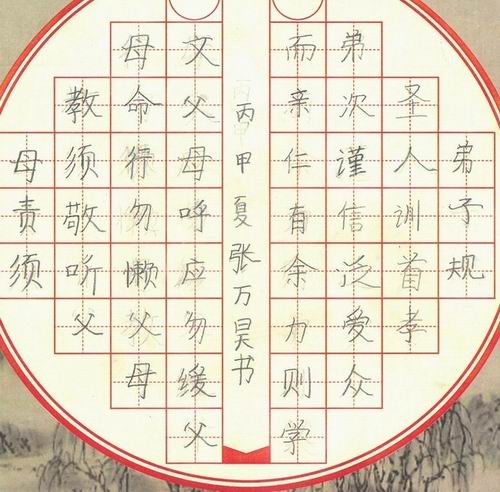 弟子规
圣人训首孝
弟次谨信泛爱众
而亲仁有余力则学
文父母呼应勿缓父
母命行勿懒父母
教须敬听父
母责须
丙甲夏张万昊书